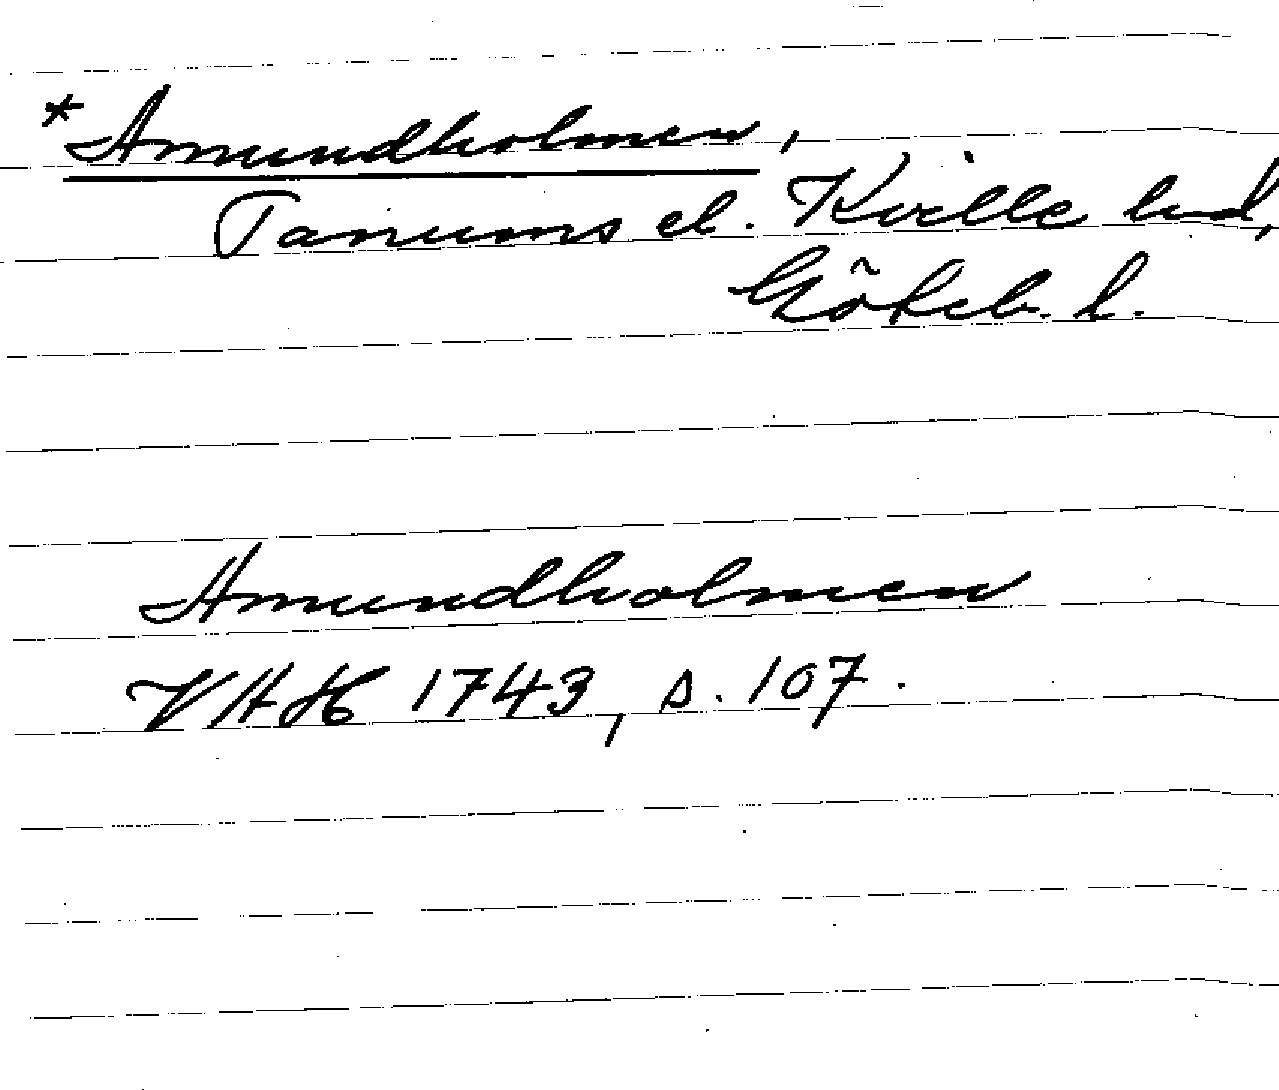 *Amundholmen,
Tanums el. Kville hd,
Göteb. l.
Amundholmen
VAH 1743, s. 107.